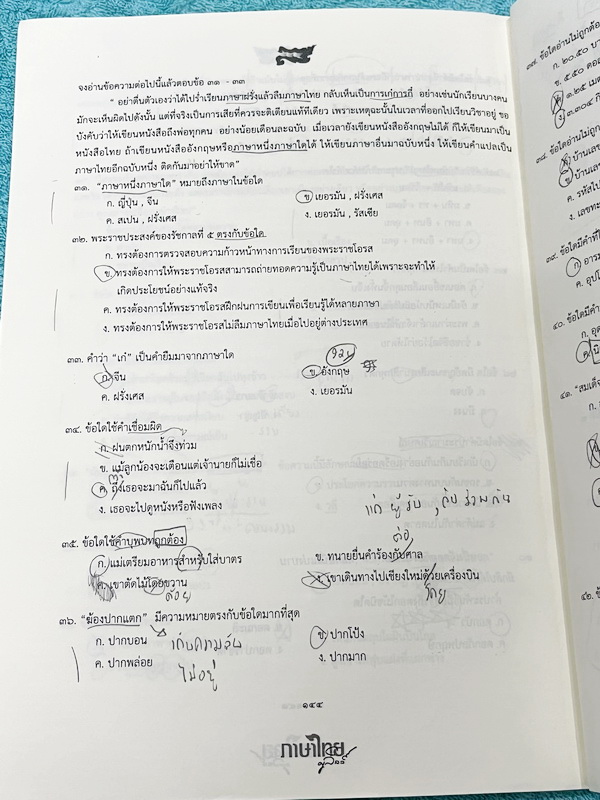 จงอ่านข้อความต่อไปนี้แล้วตอบข้อ ๓๑ - ๓๓
" อย่าตื่นตัวเองว่าได้ไปร่ำเรียนภาษาฝรั่งแล้วลืมภาษาไทย กลับเห็นเป็นการเก๋การกี๋ อย่างเช่นนักเรียนบางคน
มักจะเห็นผิดไปดังนั้น แต่ที่จริงเป็นการเสียที่ควรจะติเตียนแท้ทีเดียว เพราะเหตุฉะนั้นในเวลาที่ออกไปเรียนวิชาอยู่ ขอ
บังคับว่าให้เขียนหนังสือถึงพ่อทุกคน อย่างน้อยเดือนละฉบับ เมื่อเวลายังเขียนหนังสืออังกฤษไม่ได้ ก็ให้เขียนมาเป็น
หนังสือไทย ถ้าเขียนหนังสืออังกฤษหรือภาษาหนึ่งภาษาใดได้ ให้เขียนภาษาอื่นมาฉบับหนึ่ง ให้เขียนคำแปลเป็น
ภาษาไทยอีกฉบับหนึ่ง ติดกันมาอย่าให้ขาด"
๓๑. "ภาษาหนึ่งภาษาใด" หมายถึงภาษาในข้อใด
ก. ญี่ปุ่น , จีน
ข. เยอรมัน , ฝรั่งเศส
ค. สเปน , ฝรั่งเศส
ง. เยอรมัน , รัสเซีย
๓๒. พระราชประสงค์ของรัชกาลที่ ๕ ตรงกับข้อใด
ก. ทรงต้องการตรวจสอบความก้าวหน้าทางการเรียนของพระราชโอรส
ข. ทรงต้องการให้พระราชโอรสสามารถถ่ายทอดความรู้เป็นภาษาไทยได้เพราะจะทำให้
เกิดประโยชน์อย่างแท้จริง
ค. ทรงต้องการให้พระราชโอรสฝึกฝนการเขียนเพื่อเรียนรู้ได้หลายภาษา
ง. ทรงต้องการให้พระราชโอรสไม่ลืมภาษาไทยเมื่อไปอยู่ต่างประเทศ
๓๓. คำว่า "เก๋" เป็นคำยืมมาจากภาษาใด
ก. จีน
ข. อังกฤษ
ค. ฝรั่งเศส
ง. เยอรมัน
๓๔. ข้อใดใช้คำเชื่อมผิด
ก. ฝนตกหนักน้ำจึงท่วม
ข. แม้ลูกน้องจะเตือนแต่เจ้านายก็ไม่เชื่อ
ค. ถึงเธอจะมาฉันก็ไปแล้ว
ง. เธอจะไปดูหนังหรือฟังเพลง
แก่ ผู้รับ , กับ ร่วมกัน
๓๕. ข้อใดใช้คำบุพบทถูกต้อง
ต่อ
ก. แม่เตรียมอาหารสำหรับใส่บาตร
ข. ทนายยื่นคำร้องกับศาล
ค. เขาตัดไม้โดยขวาน
ง. เขาเดินทางไปเชียงใหม่ด้วยเครื่องบิน
ด้วย
โดย
๓๖. "ฆ้องปากแตก" มีความหมายตรงกับข้อใดมากที่สุด
ก. ปากบอน
ข. ปากโป้ง
ค. ปากพล่อย
ง. ปากมาก
เก็บความลับ
ไม่อยู่
๑๔๔
ภาษาไทย